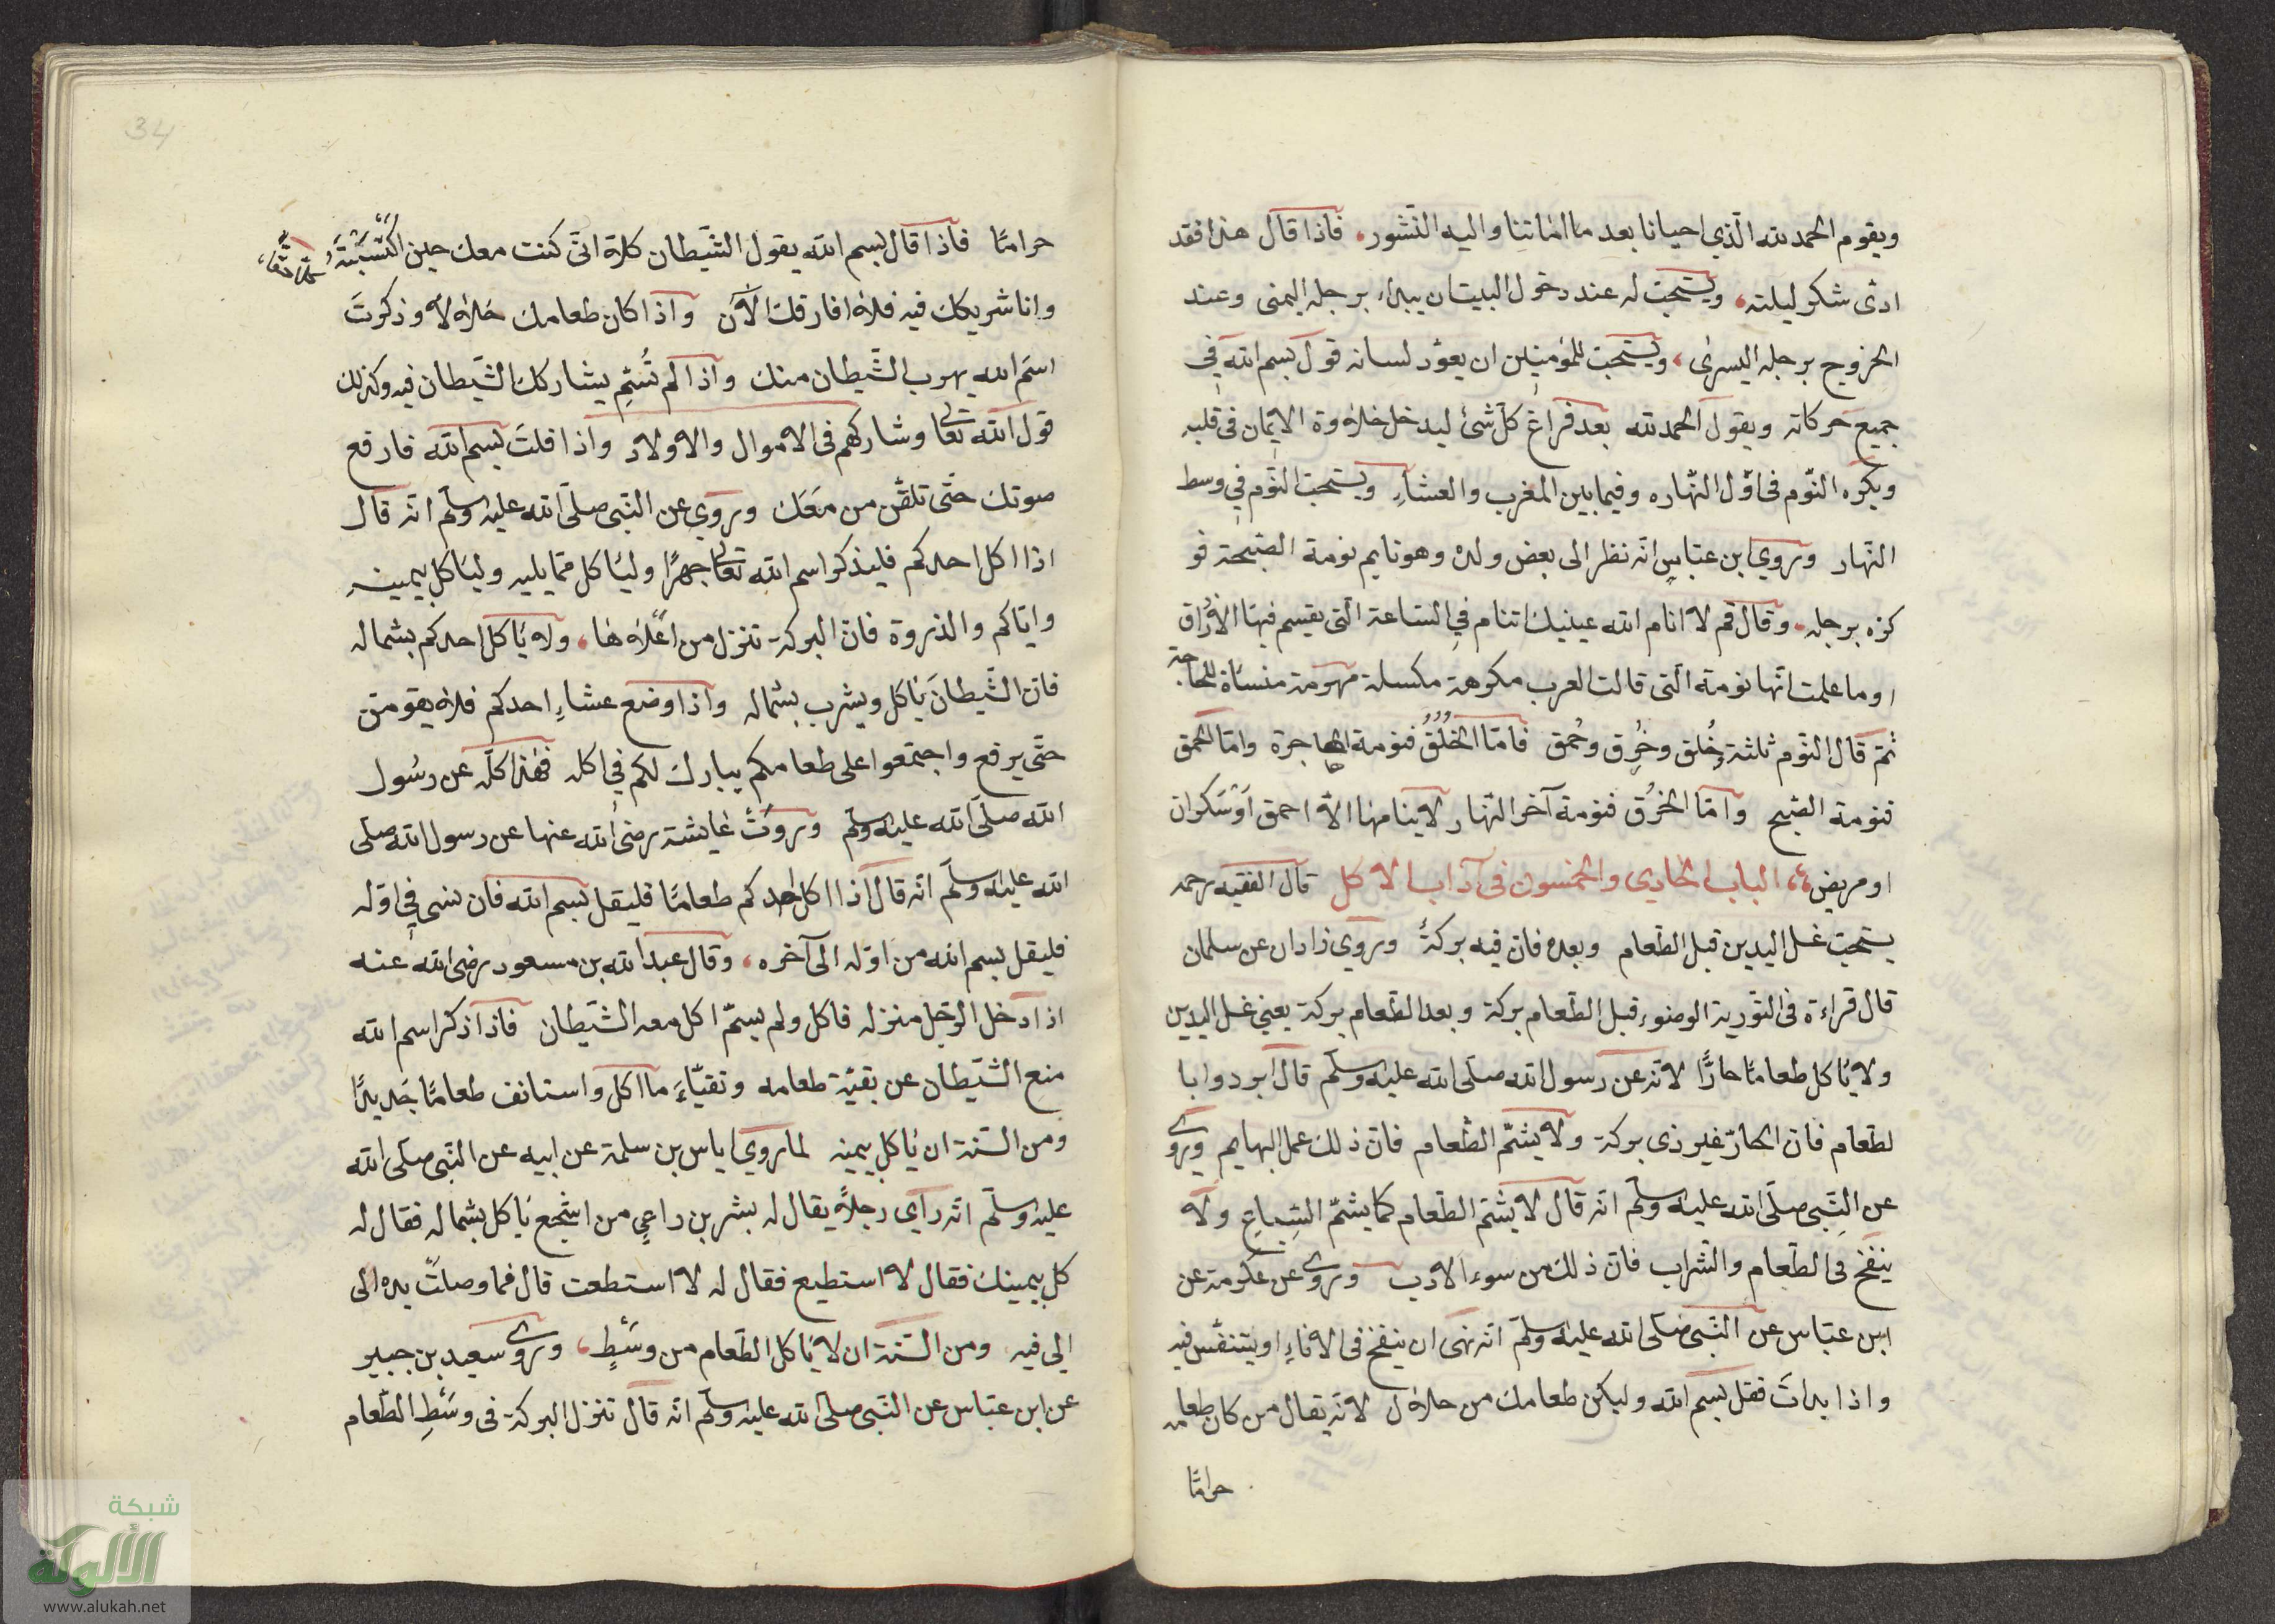 ويقوم الحمد لله الّذي احيانا بعد ما اماتنا واليه النّشور، فاذا قال هذا فقد
ادّى شكر ليلته، ويستحبّ له عند دخول البيت ان يبداء برجله اليمنى وعند
الخروج برجله اليسرى، ويستحبّ للمؤمنين ان يعوّد لسانه قول بسم الله في
جميع حركاته ويقول الحمد لله بعد فراغ كلّ شئ ليدخل حلاوة الايمان في قلبه
ويكره النّوم في اوّل النّهاره وفيما بين المغرب والعشاء ويستحبّ النّوم في وسط
النّهار وروي ابن عبّاس انّه نظر الى بعض ولده وهو نايم نومة الصّبحة فو
كزه برجله، وقال قم لا انام الله عينيك اتنام في السّاعة الّتي يقسم فيها الارزاق
اوما علمت انّها نومة الّتي قالت العرب مكرهة مكسلة مهرمة منساة للحاجة
ثمّ قال النّوم ثلثة خُلق وخُرق وحُمق فامّا الخُلُقُ فنومة الهاجرة وامّا الحمق
فنومة الصّبح وامّا الخرُق فنومة آخر النّهار لا ينامها الاّ احمق اوسكران
او مريض، الباب الحادي والخمسون في آداب الاكل قال الفقيه رحمه
يستحبّ غسل اليدين قبل الطّعام وبعده فانّ فيه بركةً وروي زاذان عن سلمان
قال قراءة في التّورية الوضوء قبل الطّعام بركة وبعد الطّعام بركة يعني غسل اليدين
ولا يأكل طعامًا حارًّا لانّه عن رسول الله صلّى الله عليه وسلّم قال ابردوا با
لطّعام فانّ الحارّ غير ذي بركة ولا يشمّ الطّعام فانّ ذلك عمل البهايم وروي
عن النّبي صلّى الله عليه وسلّم انّه قال لا يشمّ الطّعام كما يشمّ السِّباع ولا
ينفخ في الطّعام والشّراب فانّ ذلك من سوء الادب وروي عن عكرمة عن
ابن عبّاس عن النّبي صلّى الله عليه وسلّم انّه نهى ان ينفخ في الاناء او يتنفّس فيه
واذا بدات فقل بسم الله وليكن طعامك من حلال لانّه يقال من كان طعامه
حرامًا
34
حرامًا فاذا قال بسم الله يقول الشّيطان كلا انّي كنت معك حين اكتسبته
وانا شريكك فيه فلا افارقك الآن واذا كان طعامك حلالا وذكرتَ
اسم الله يهرب الشّيطان منك واذا لم تُسَمّ يشاركك الشّيطان فيه وكذلك
قول الله تعالى وشاركهم في الاموال والاولاد واذا قلتَ بسم الله فارفع
صوتك حتّى تلقّن من مَعَك وروي عن النّبي صلّى الله عليه وسلّم انّه قال
اذا اكل احدكم فليذكر اسم الله تعالى جهرًا وليأكل ممّا يليه وليأكل بيمينه
وايّاكم والذروة فانّ البركة تنزل من اعلاها، ولا يأكل احدكم بشماله
فانّ الشّيطانَ يأكل ويشرب بشماله واذا وضع عشاء احدكم فلا يقومنّ
حتّى يرفع واجتمعوا على طعامكم يبارك لكم في اكله فهذا كلّه عن رسول
الله صلّى الله عليه وسلّم وروتْ عايشة رضي الله عنها عن رسول الله صلّى
الله عليه وسلّم انّه قال اذا اكل احدكم طعامًا فليقل بسم الله فان نسي في اوّله
فليقل بسم الله من اوّله الى آخره، وقال عبد الله بن مسعود رضي الله عنه
اذا دخل الرّجل منزله فاكل ولم يسمّ اكل معه الشّيطان فاذا ذكر اسم الله
منع الشّيطان عن بقيّة طعامه وتقيّاءَ ما اكل واستانف طعامًا جديدًا
ومن السّنة ان يأكل بيمينه لما روي اياس بن سلمة عن ابيه عن النّبي صلّى الله
عليه وسلّم انّه رآي رجلاً يقال له بشر بن راعي من اشجع يأكل بشماله فقال له
كل بيمينك فقال لا استطيع فقال له لا استطعت قال فما وصلتْ يده الى
الى فيه ومن السّنة ان لا يأكل الطّعام من وسْطٍ، وروي سعيد بن جبير
عن ابن عبّاس عن النّبي صلّى الله عليه وسلّم انّه قال تنزل البركة في وسْطِ الطّعام
شبكة
الألوكة
www.alukah.net